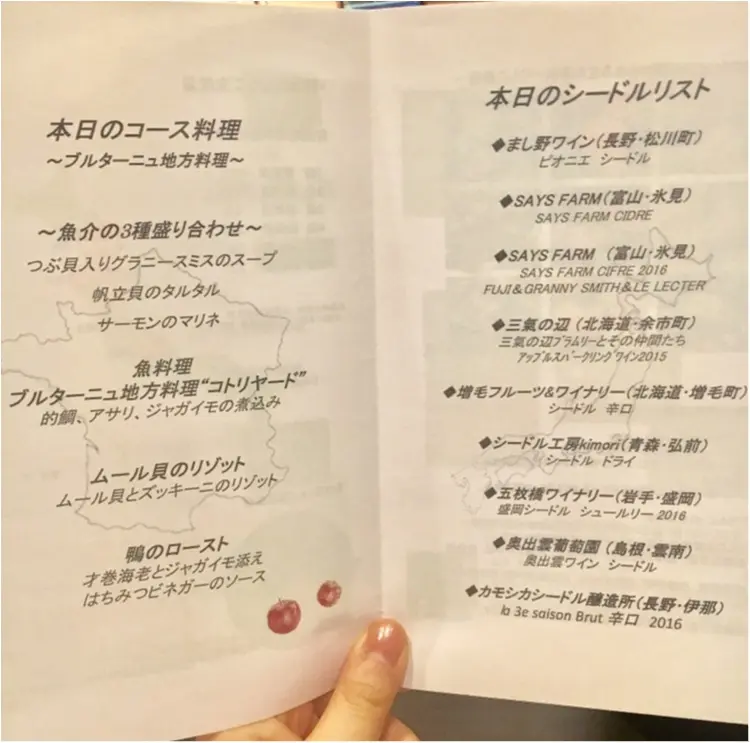 本日のコース料理
～ブルターニュ地方料理～
～魚介の3種盛り合わせ～
つぶ貝入りグラニースミスのスープ
帆立貝のタルタル
サーモンのマリネ
魚料理
ブルターニュ地方料理“コトリヤード”
的鯛、アサリ、ジャガイモの煮込み
ムール貝のリゾット
ムール貝とズッキーニのリゾット
鴨のロースト
才巻海老とジャガイモ添え
はちみつビネガーのソース
本日のシードルリスト
◆まし野ワイン(長野・松川町)
ピオニエ シードル
◆SAYS FARM(富山・氷見)
SAYS FARM CIDRE
◆SAYS FARM (富山・氷見)
SAYS FARM CIFRE 2016
FUJI&GRANNY SMITH&LE LECTER
◆三氣の辺 (北海道・余市町)
三氣の辺ブラムリーとその仲間たち
アップルスパークリングワイン2015
◆増毛フルーツ&ワイナリー(北海道・増毛町)
シードル 辛口
◆シードル工房kimori(青森・弘前)
シードル ドライ
◆五枚橋ワイナリー(岩手・盛岡)
盛岡シードル シュールリー 2016
◆奥出雲葡萄園 (島根・雲南)
奥出雲ワイン シードル
◆カモシカシードル醸造所(長野・伊那)
la 3e saison Brut 辛口 2016